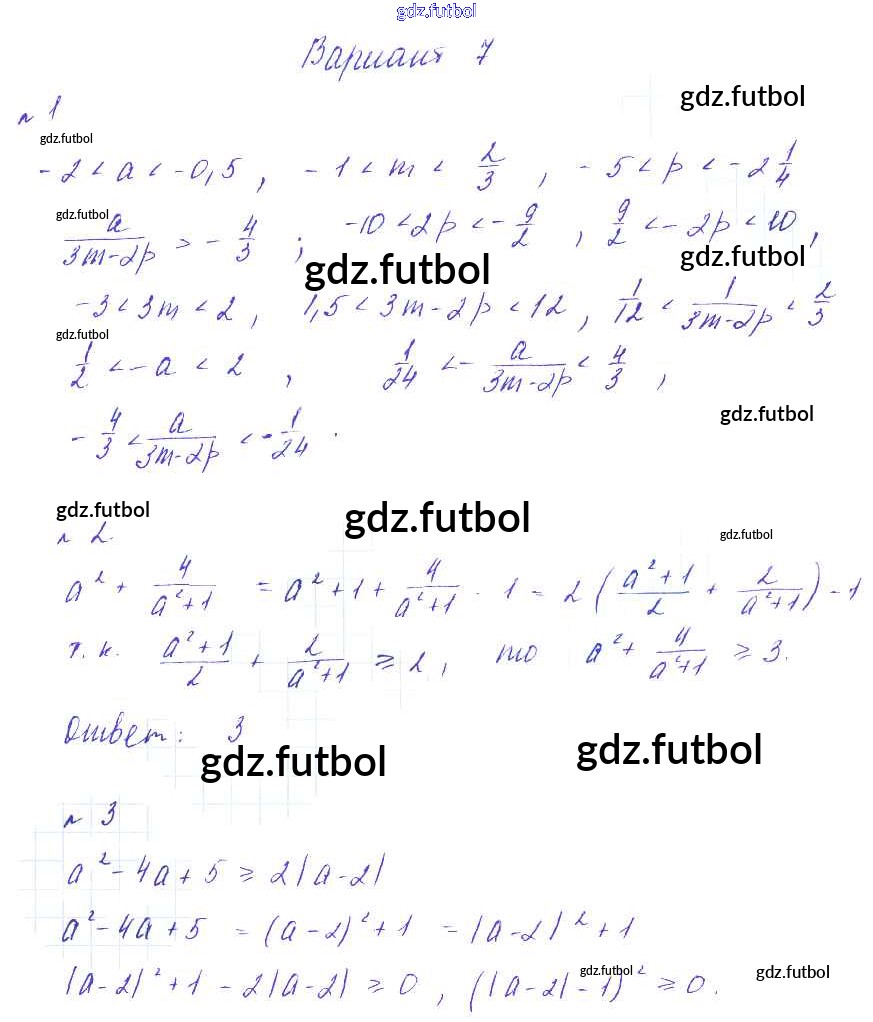 gdz.futbol
Вариант 7
gdz.futbol
№ 1
gdz.futbol
-2 < a < -0,5 , -1 < m < 2/3 , -5 < p < -2 1/4
gdz.futbol
a/(3m-2p) > -4/3 ; -10 < 2p < -9/2 , 9/2 < -2p < 10 ,
gdz.futbol gdz.futbol
-3 < 3m < 2 , 1,5 < 3m-2p < 12 , 1/12 < 1/(3m-2p) < 2/3
gdz.futbol
1/2 < -a < 2 , 1/24 < -a/(3m-2p) < 4/3 ,
gdz.futbol
-4/3 < a/(3m-2p) < -1/24 .
gdz.futbol gdz.futbol
№ 2. gdz.futbol
a² + 4/(a²+1) = a² + 1 + 4/(a²+1) - 1 = 2((a²+1)/2 + 2/(a²+1)) - 1
т.к. (a²+1)/2 + 2/(a²+1) ≥ 2, то a² + 4/(a²+1) ≥ 3.
Ответ: 3
gdz.futbol gdz.futbol
№ 3
a² - 4a + 5 ≥ 2|a-2|
a² - 4a + 5 = (a-2)² + 1 = |a-2|² + 1
gdz.futbol gdz.futbol
|a-2|² + 1 - 2|a-2| ≥ 0 , (|a-2|-1)² ≥ 0.